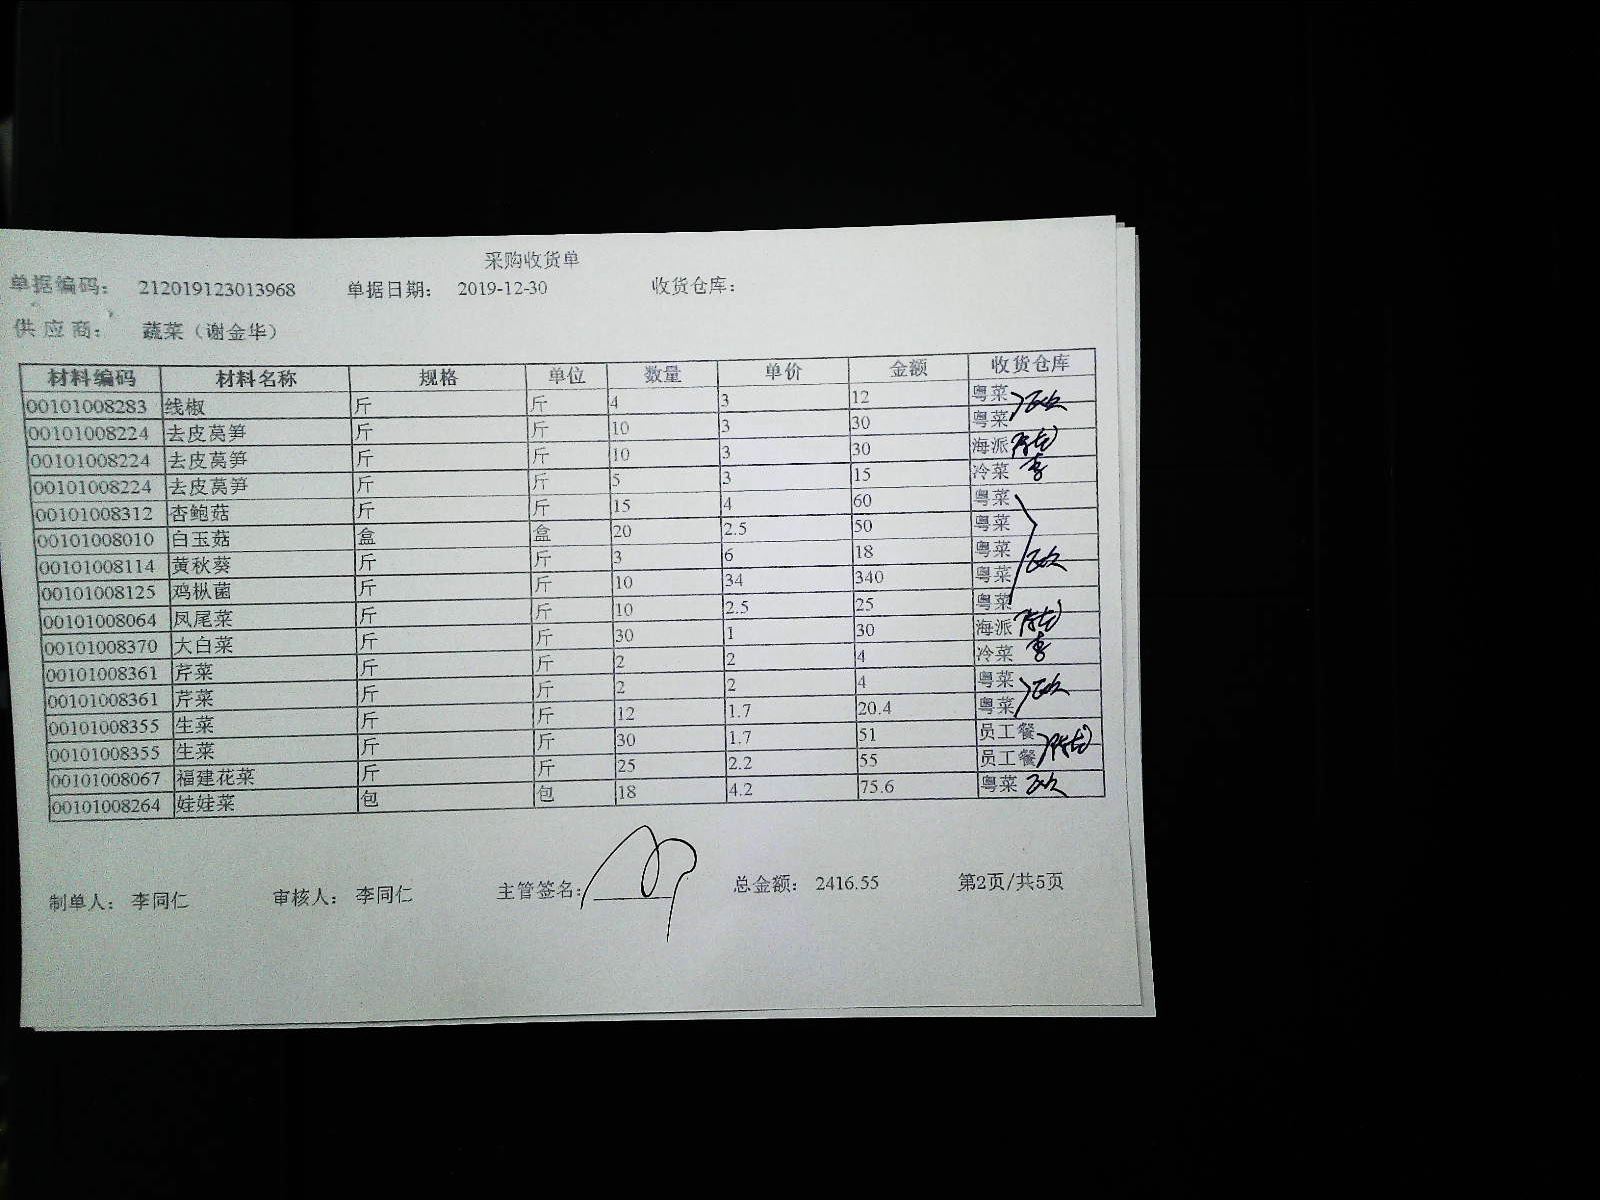 采购收货单
单据编码： 212019123013968 单据日期： 2019-12-30 收货仓库：
供应商： 蔬菜（谢金华）
材料编码 材料名称 规格 单位 数量 单价 金额 收货仓库
00101008283 线椒 斤 斤 4 3 12 粤菜
00101008224 去皮莴笋 斤 斤 10 3 30 粤菜
00101008224 去皮莴笋 斤 斤 10 3 30 海派
00101008224 去皮莴笋 斤 斤 5 3 15 冷菜 李
00101008312 杏鲍菇 斤 斤 15 4 60 粤菜
00101008010 白玉菇 盒 盒 20 2.5 50 粤菜
00101008114 黄秋葵 斤 斤 3 6 18 粤菜
00101008125 鸡枞菌 斤 斤 10 34 340 粤菜
00101008064 凤尾菜 斤 斤 10 2.5 25 粤菜
00101008370 大白菜 斤 斤 30 1 30 海派
00101008361 芹菜 斤 斤 2 2 4 冷菜 李
00101008361 芹菜 斤 斤 2 2 4 粤菜
00101008355 生菜 斤 斤 12 1.7 20.4 粤菜
00101008355 生菜 斤 斤 30 1.7 51 员工餐
00101008067 福建花菜 斤 斤 25 2.2 55 员工餐
00101008264 娃娃菜 包 包 18 4.2 75.6 粤菜
制单人： 李同仁 审核人： 李同仁 主管签名： 总金额： 2416.55 第2页/共5页